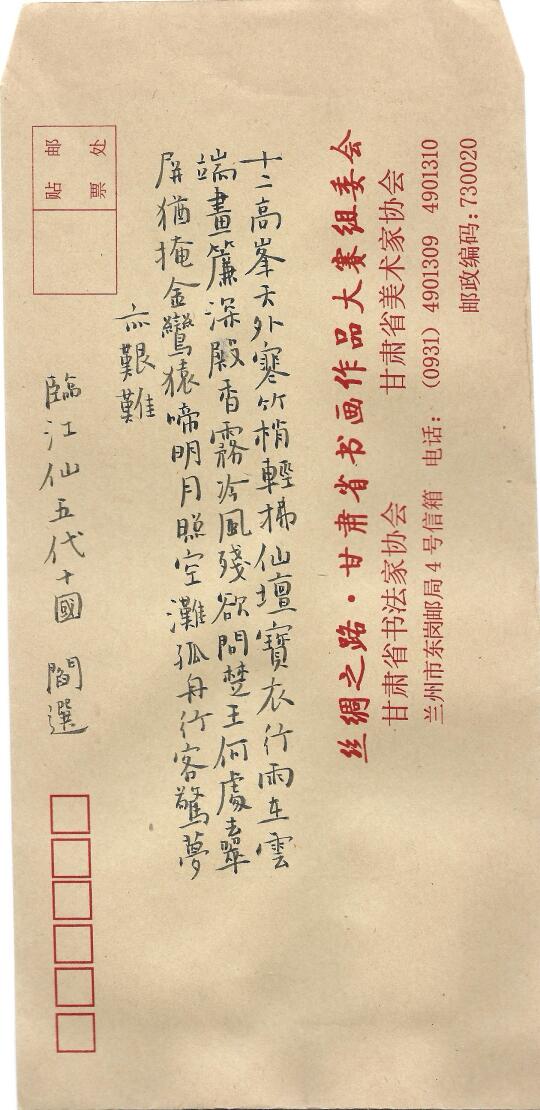 十二高峯天外寒竹梢輕拂仙壇寶衣行雨在雲
端畫簾深殿香霧冷風殘欲問楚王何處去翠
屏猶掩金鸞猿啼明月照空灘孤舟行客驚夢
亦艱難
臨江仙五代十國 閻選
贴邮
票处
丝绸之路·甘肃省书画作品大赛组委会
甘肃省书法家协会 甘肃省美术家协会
兰州市东岗邮局4号信箱 电话：((0931) 4901309 4901310
邮政编码：730020